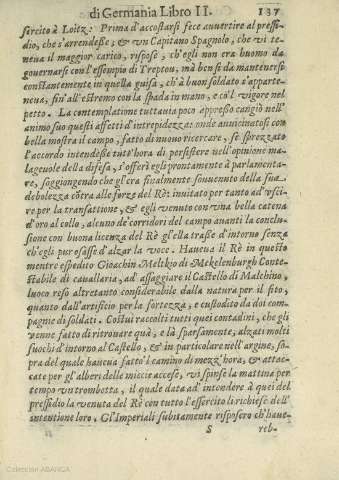 di Germania Libro II. 137
sercito à Loitz: Prima d'accostarsi fece auuertire al presi-
dio, che s'arrendesse, & vn Capitano Spagnolo, che vi te-
neua il maggior carico, rispose, ch'egli non era buomo da
gouernarsi con l'essempio di Treptou, mà ben sè da mantenersi
constantemente in quella guisa, ch'à buon soldato s'apparte-
neua, fin'all'estremo con la spada in mano, e co'l vigore nel
petto. La contemplatione tuttauia poco appresso cangiò nell'
animo suo questi affetti d'intrepidezza: onde auuicinatosi con
bella mostra il campo, fatto di nuouo ricercare, se sprezzato
l'accordo intendesse tutt'hora di persistere nell'opinione ma-
lageuole della difesa, s'offerì egli prontamente à parlamenta-
re, soggiongendo che gl'era finalmente souuenuto della sua
debolezza cōtra alle forze del Rè: inuitato per tanto ad'vsci-
re per la transattione, & egli venuto con vna bella catena
d'oro al collo, alcuno de' corridori del campo auanti la conclu-
sione con buona licenza del Rè gl'ella trasse d'intorno senza
ch'egli pur'osasse d'alzar la voce. Haueua il Rè in questo
mentre espedito Gioachin Meltkio di Mekelenburgh Conte-
stabile di cauallaria, ad'assaggiare il Castello di Malchino,
luoco reso altretanto considerabile dalla natura per il sito,
quanto dall'artificio per la fortezza, e custodito da doi com-
pagnie di soldati. Costui raccolti tutti quei contadini, che gli
venne fatto di ritrouare quà, e là sparsamente, alzati molti
fuochi d'intorno al Castello, & in particolare nell'argine, so-
pra del quale haueua fatto l'camino di mezz'hora, & attac-
cate per gl'alberi delle miccie accese, vi spinse la mattina per
tempo vn trombotta, il quale data ad'intendere à quei del
pressidio la venuta del Rè con tutto l'essercito li richiese dell'
intentione loro. Gl'Imperiali subitamente risposero ch'haue-
S reb-
Colección ABANCA